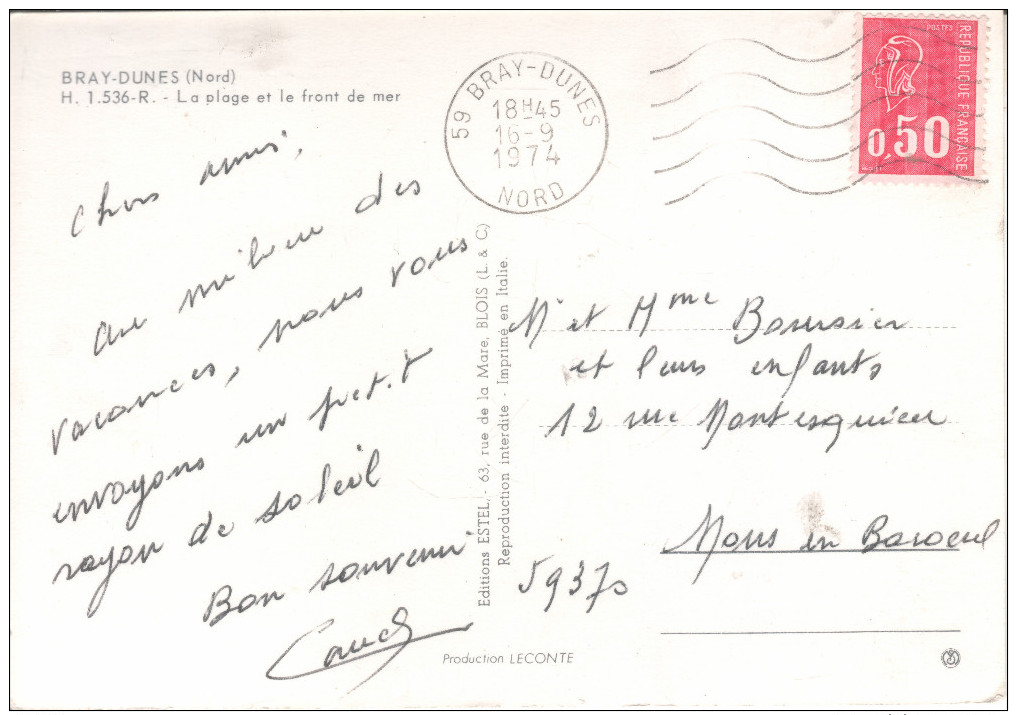 BRAY-DUNES (Nord)
H. 1.536-R. - La plage et le front de mer
59 BRAY-DUNES
18H45
16-9
1974
NORD
POSTES
REPUBLIQUE FRANÇAISE
0,50
Chers amis,
Au milieu des
vacances, nous vous
envoyons un petit
rayon de soleil
Bon souvenir
Editions ESTEL, - 63, rue de la Mare, BLOIS (L. & C.)
Reproduction interdite - Imprimé en Italie.
Mr et Mme Boursier
et leurs enfants
12 rue Montesquieu
Mons en Baroeul
59370
Production LECONTE